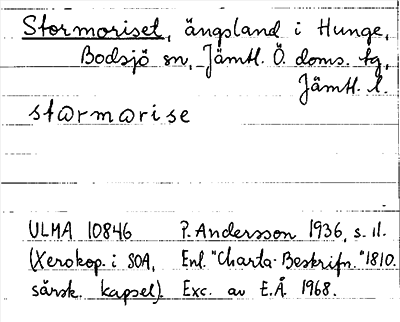 Stormoriset, ängsland i Hunge,
Bodsjö sn, Jämtl. Ö. doms. tg,
Jämtl. l.
stormorise
ULMA 10846 P. Andersson 1936, s. 11.
(Xerokop. i SOA, Enl. "Charta-Beskrifn." 1810.
särsk. kapsel). Exc. av E.Å. 1968.